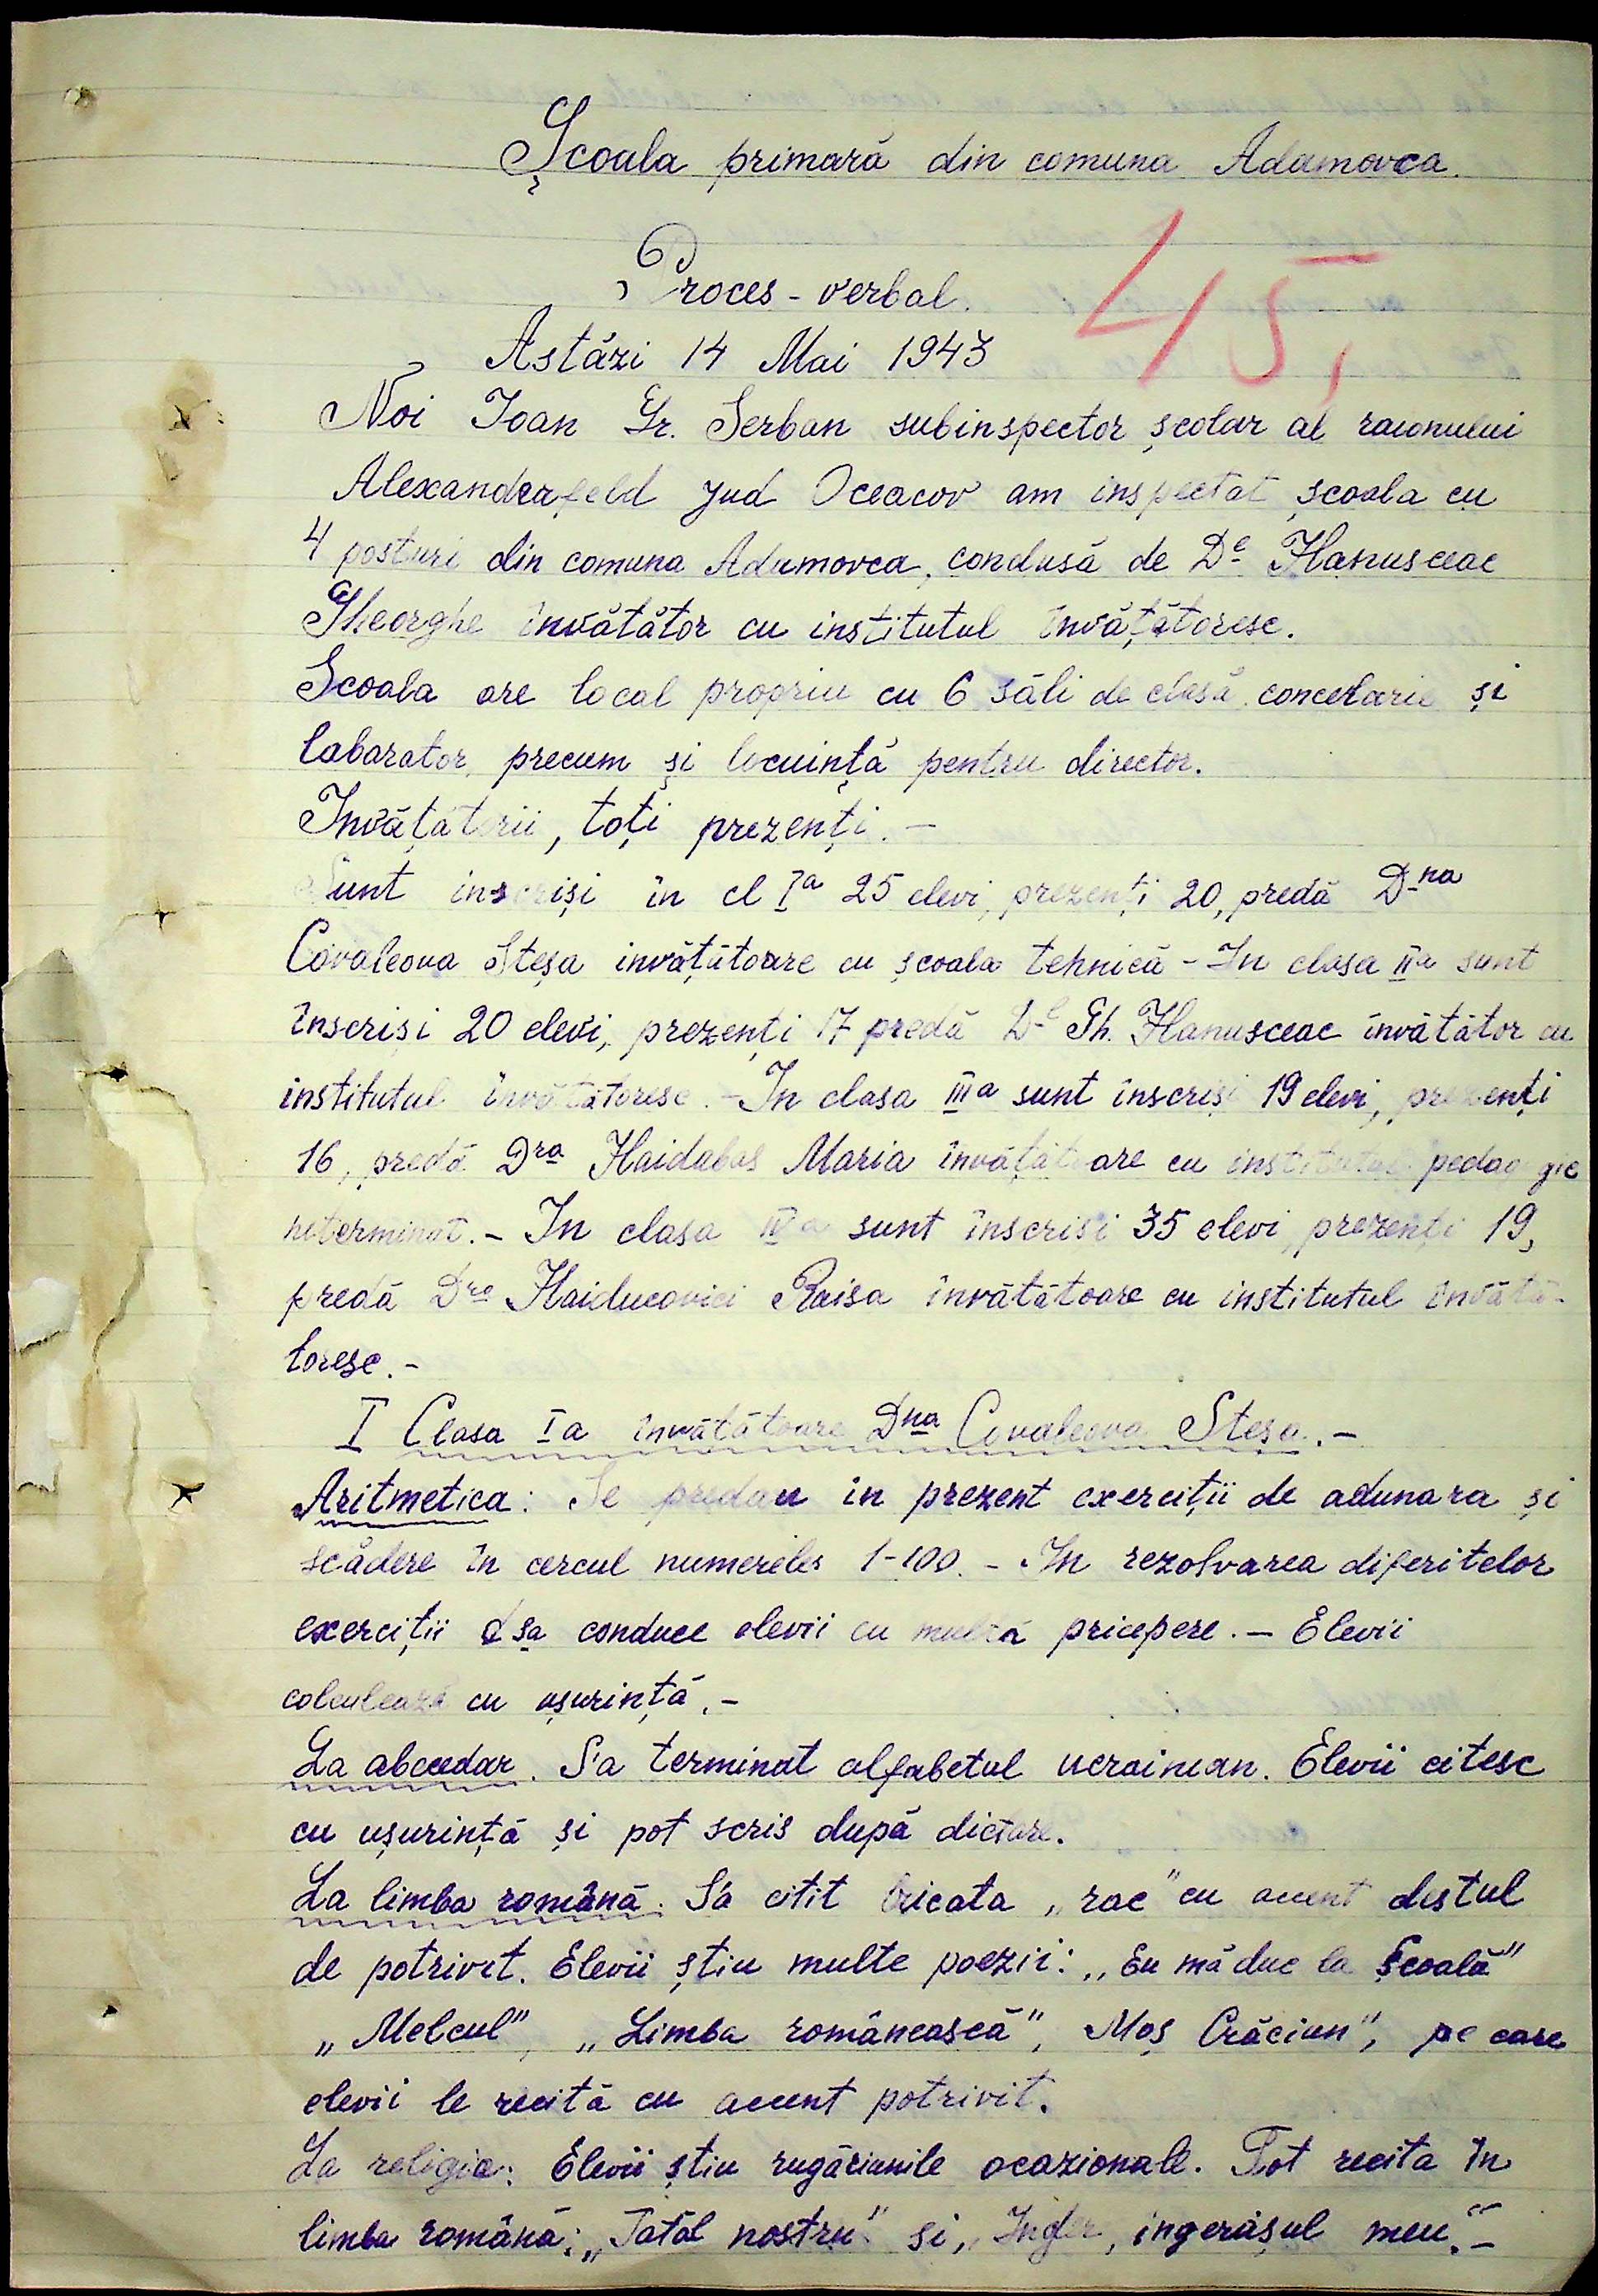 Școala primară din comuna Adamovca.
45,
Proces-verbal.
Astăzi 14 Mai 1943
Noi Ioan Gr. Serban subinspector școlar al raionului
Alexanderfeld jud Oceacov am inspectat școala cu
4 posturi din comuna Adamovca, condusă de Dl Hanusceac
Gheorghe învătător cu institutul învățătoresc.
Scoala are local propriu cu 6 săli de clasă concelarie și
labarator, precum și locuință pentru director.
Invățătorii, toți prezenți. -
Sunt inscriși in cl Ia 25 elevi, prezenți 20, predă Dna
Covaleova Steșa invățătoare cu școala tehnică - In clasa IIa sunt
înscriși 20 elevi, prezenți 17 predă Dl Gh. Hanusceac învătător cu
institutul învătătoresc. - In clasa IIIa sunt înscriși 19 elevi, prezenți
16, predă Dra Haidabas Maria învățătoare cu institutul pedagogic
neterminat. - In clasa IVa sunt înscrisi 35 elevi, prezenți 19,
predă Dra Haiducovici Raisa învătătoare cu institutul învătă-
toresc. -
I Clasa Ia învătătoare Dna Covaleova Steșa. -
Aritmetica: Se predau in prezent exerciții de adunara și
scădere în cercul numerelor 1-100. - In rezolvarea diferitelor
exerciții dsa conduce elevii cu multă pricepere. - Elevii
calculează cu ușurință. -
La abecedar. S'a terminat alfabetul ucrainian. Elevii citesc
cu ușurință și pot scris după dictare.
La limba română. S'a citit bucata „rac" cu accent destul
de potrivit. Elevii știu multe poezii: „Eu mă duc la Școală"
„Melcul", „Limba românească", Moș Crăciun", pe care
elevii le recită cu accent potrivit.
La religia: Elevii știu rugăciunile ocazionale. Pot recita în
limba română: „Tatăl nostru" si „Inger, ingerășul meu". -